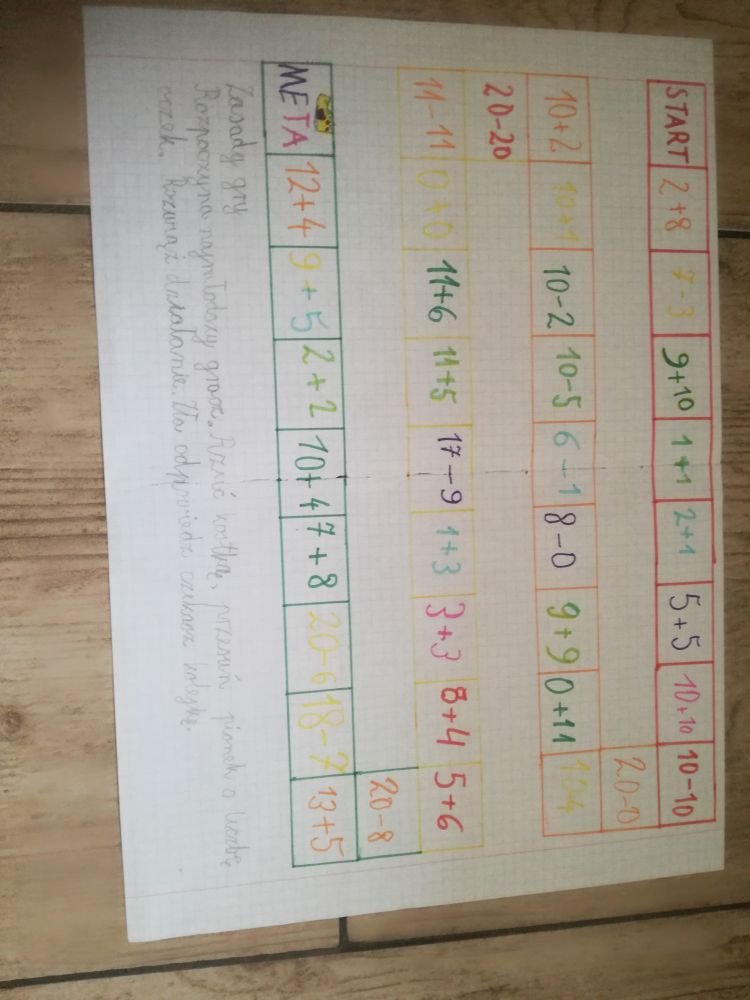 START 2+8 7-3 9+10 1+1 2+1 5+5 10+10 10-10
20-0
10+2 10+1 10-2 10-5 6-1 8-0 9+9 0+11
20-20
11-11 0+0 11+6 11+5 17-9 1+3 3+3 8+4 5+6
20-8
META 12+4 9+5 2+2 10+4 7+8 20-6 18-7 13+5
Zasady gry
Rozpoczyna najmłodszy gracz. Rzuć kostką, przesuń pionek o liczbę
oczek. Rozwiąż działanie. Na odpowiedź czekasz kolejkę.